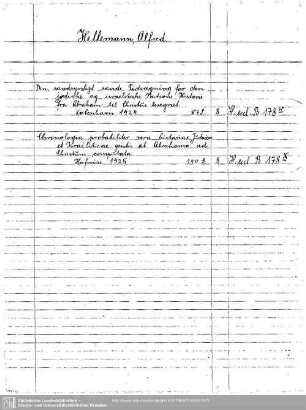 Hellemann, Alfred
Den sandsynligt sande Tidsregning for den
jødiske og israelitiske Nations Historie
fra Abraham til Christus beregnet
København 1925 8 H. ud. B 178
Chronologia probabiliter vera historiae Judaicae
et Israeliticae gentis ab Abrahamo ad
Christum computata
Hafniae 1926 8 H. ud. B 178
Sächsische Landesbibliothek –
Staats- und Universitätsbibliothek Dresden